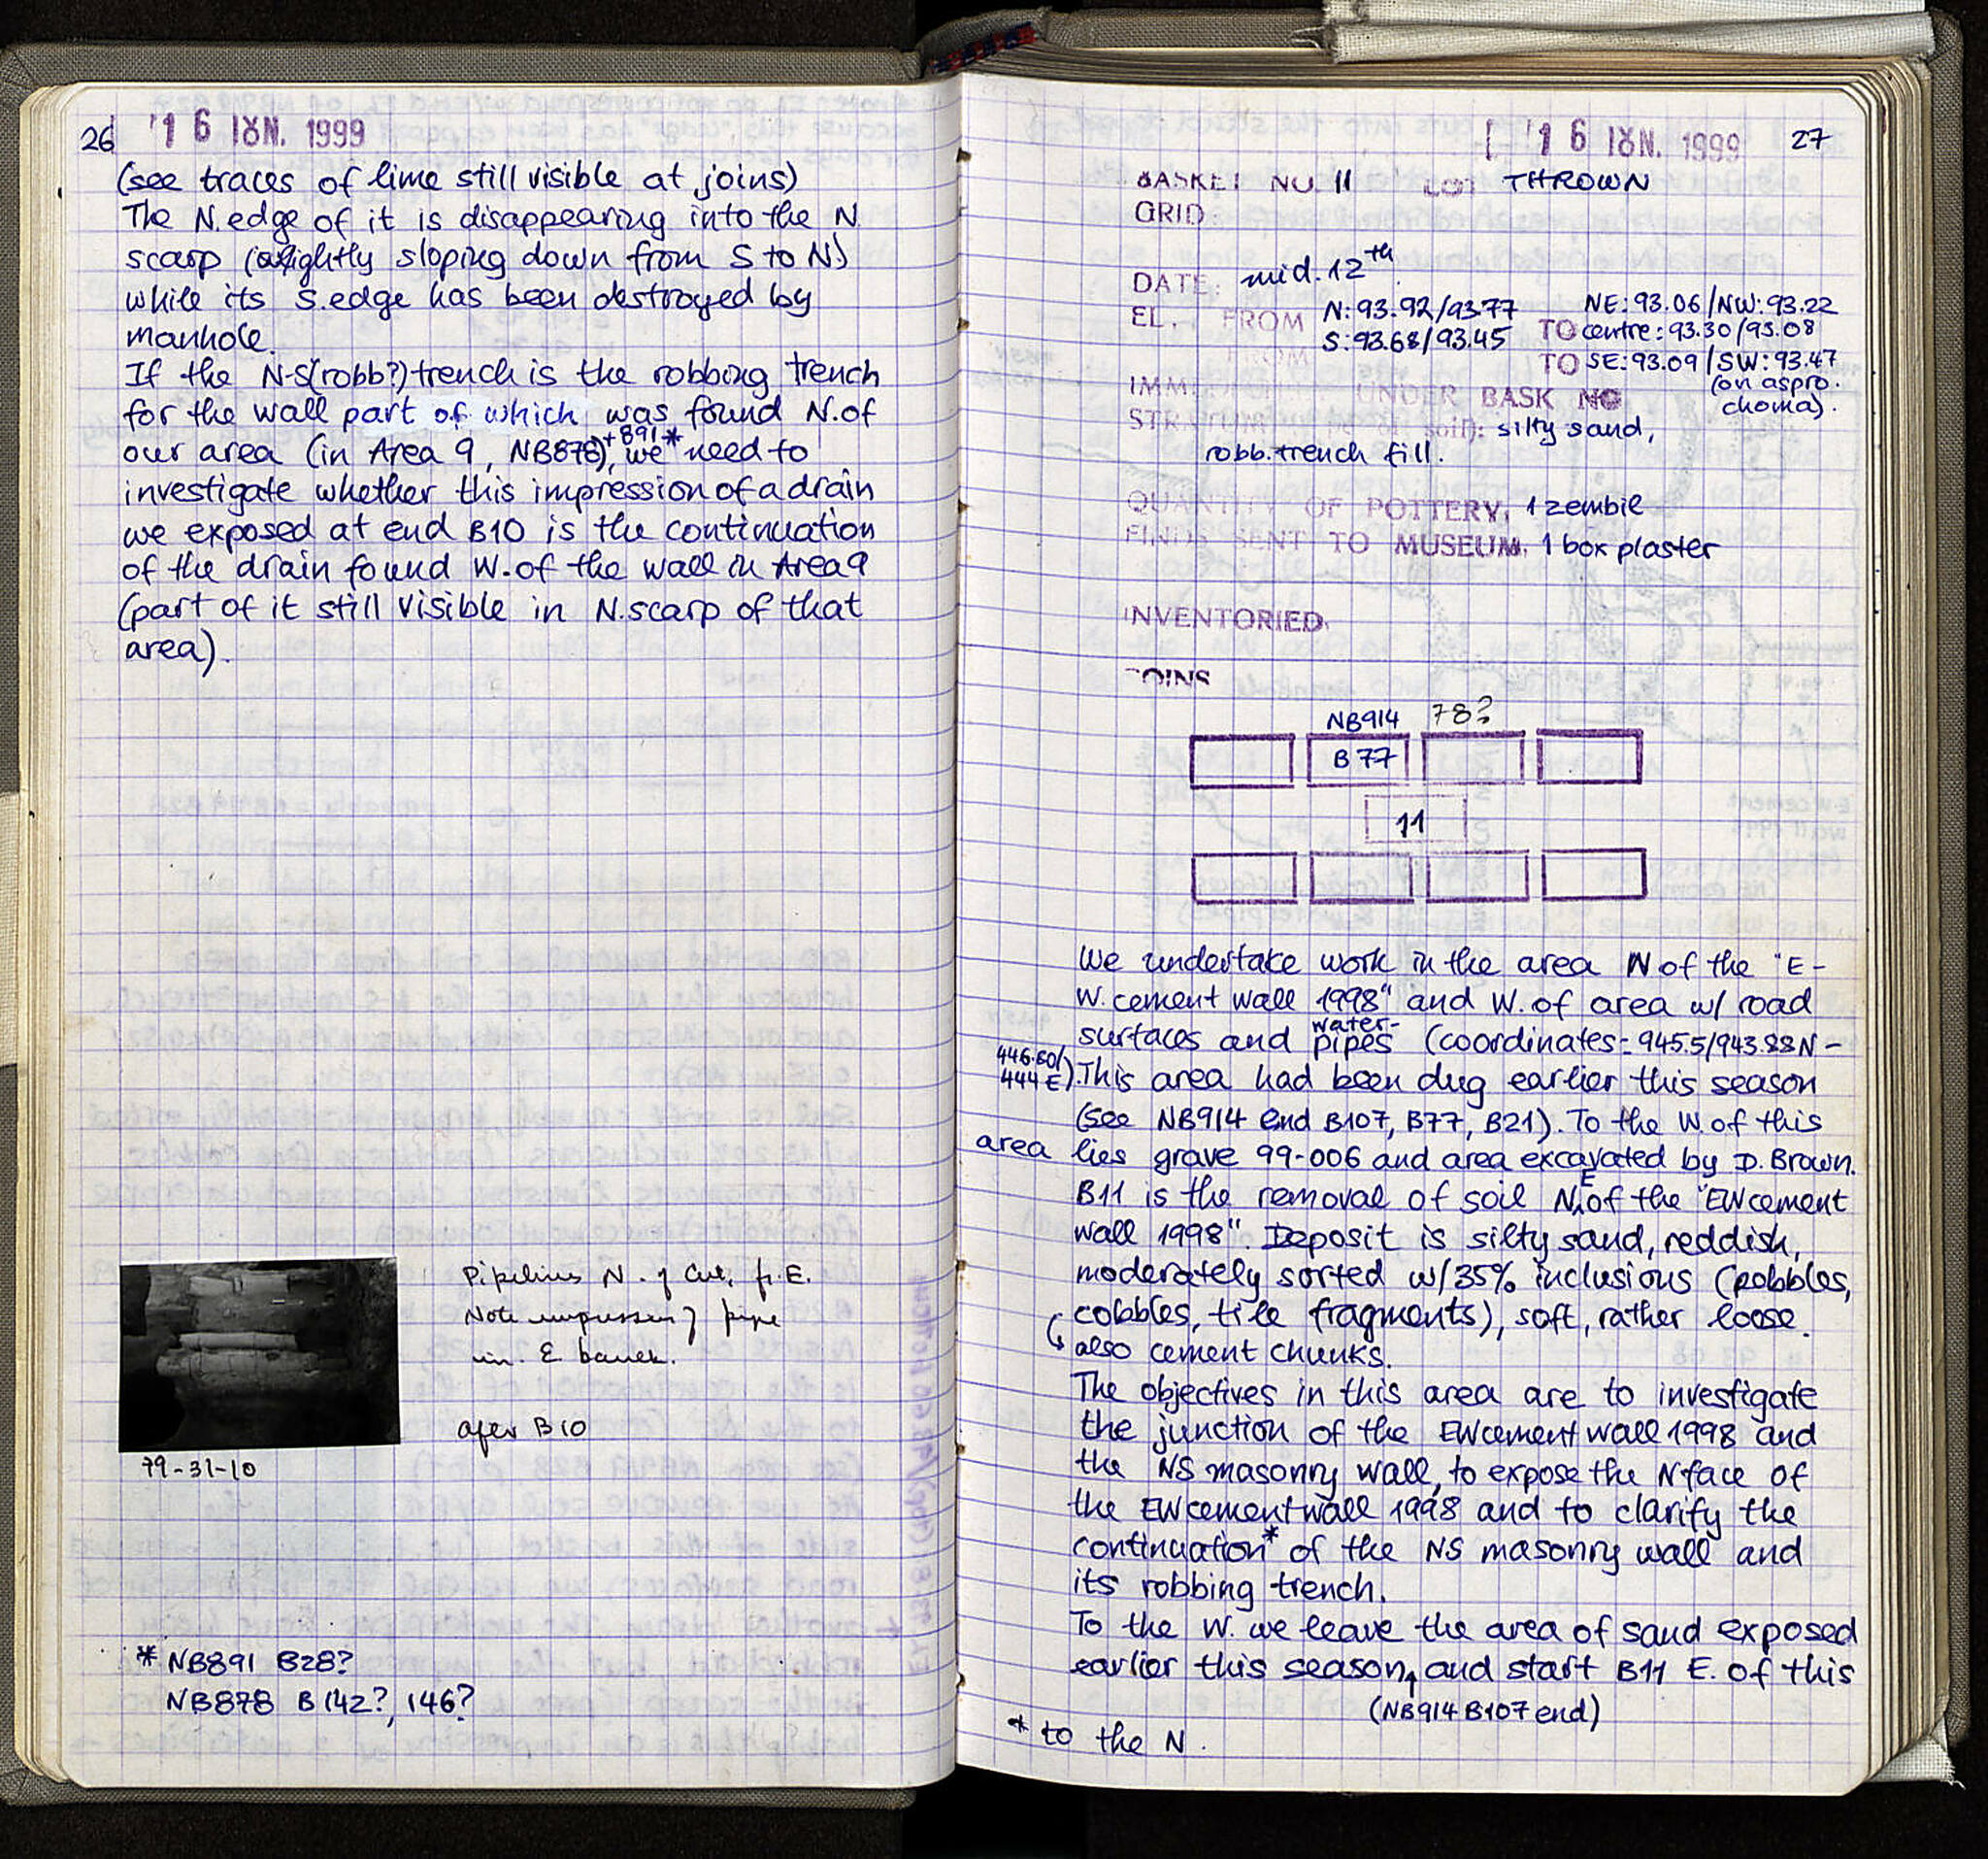 26 16 ΙΟΥΝ. 1999
(see traces of lime still visible at joins)
The N.edge of it is disappearing into the N
scarp (slightly sloping down from S to N)
while its S.edge has been destroyed by
manhole.
If the N-S(robb?) trench is the robbing trench
for the wall part of which was found N.of
our area (in Area 9, NB878)+891*, we need to
investigate whether this impression of a drain
we exposed at end B10 is the continuation
of the drain found W. of the wall in Area 9
(part of it still visible in N.scarp of that
area).
Pipelines N. of Cut, fr. E.
Note impression of pipe
in E
after B10
99-31-10
* NB891 B28?
NB878 B142?, 146?
16 ΙΟΥΝ. 1999 27
BASKET NO. 11 LOT THROWN
GRID
DATE: mid. 12th
EL. FROM N: 93.92/93.77 NE: 93.06/NW: 93.22
S: 93.68/93.45 TO centre: 93.30/93.08
FROM TO SE: 93.09/SW: 93.47
(on aspro.
choma).
UNDER BASK NO
silty sand,
robb. trench fill.
QUANTITY OF POTTERY. 1 zembil
FINDS SENT TO MUSEUM. 1 box plaster
INVENTORIED.
COINS
NB914 78?
B77
11
We undertake work in the area N of the "E-
W.cement wall 1998" and W. of area w/ road
surfaces and water-pipes (coordinates: 945.5/943.88N -
446.60/444 E). This area had been dug earlier this season
(see NB914 end B107, B77, B21). To the W. of this
area lies grave 99-006 and area excavated by D. Brown.
B11 is the removal of soil NE of the "EW cement
wall 1998". Deposit is silty sand, reddish,
moderately sorted w/35% inclusions (pebbles,
cobbles, tile fragments), soft, rather loose.
↳ also cement chunks.
The objectives in this area are to investigate
the junction of the EW cement wall 1998 and
the NS masonry wall, to expose the N face of
the EW cement wall 1998 and to clarify the
continuation* of the NS masonry wall and
its robbing trench.
To the W. we leave the area of sand exposed
earlier this season, and start B11 E. of this
(NB914 B107 end)
* to the N.